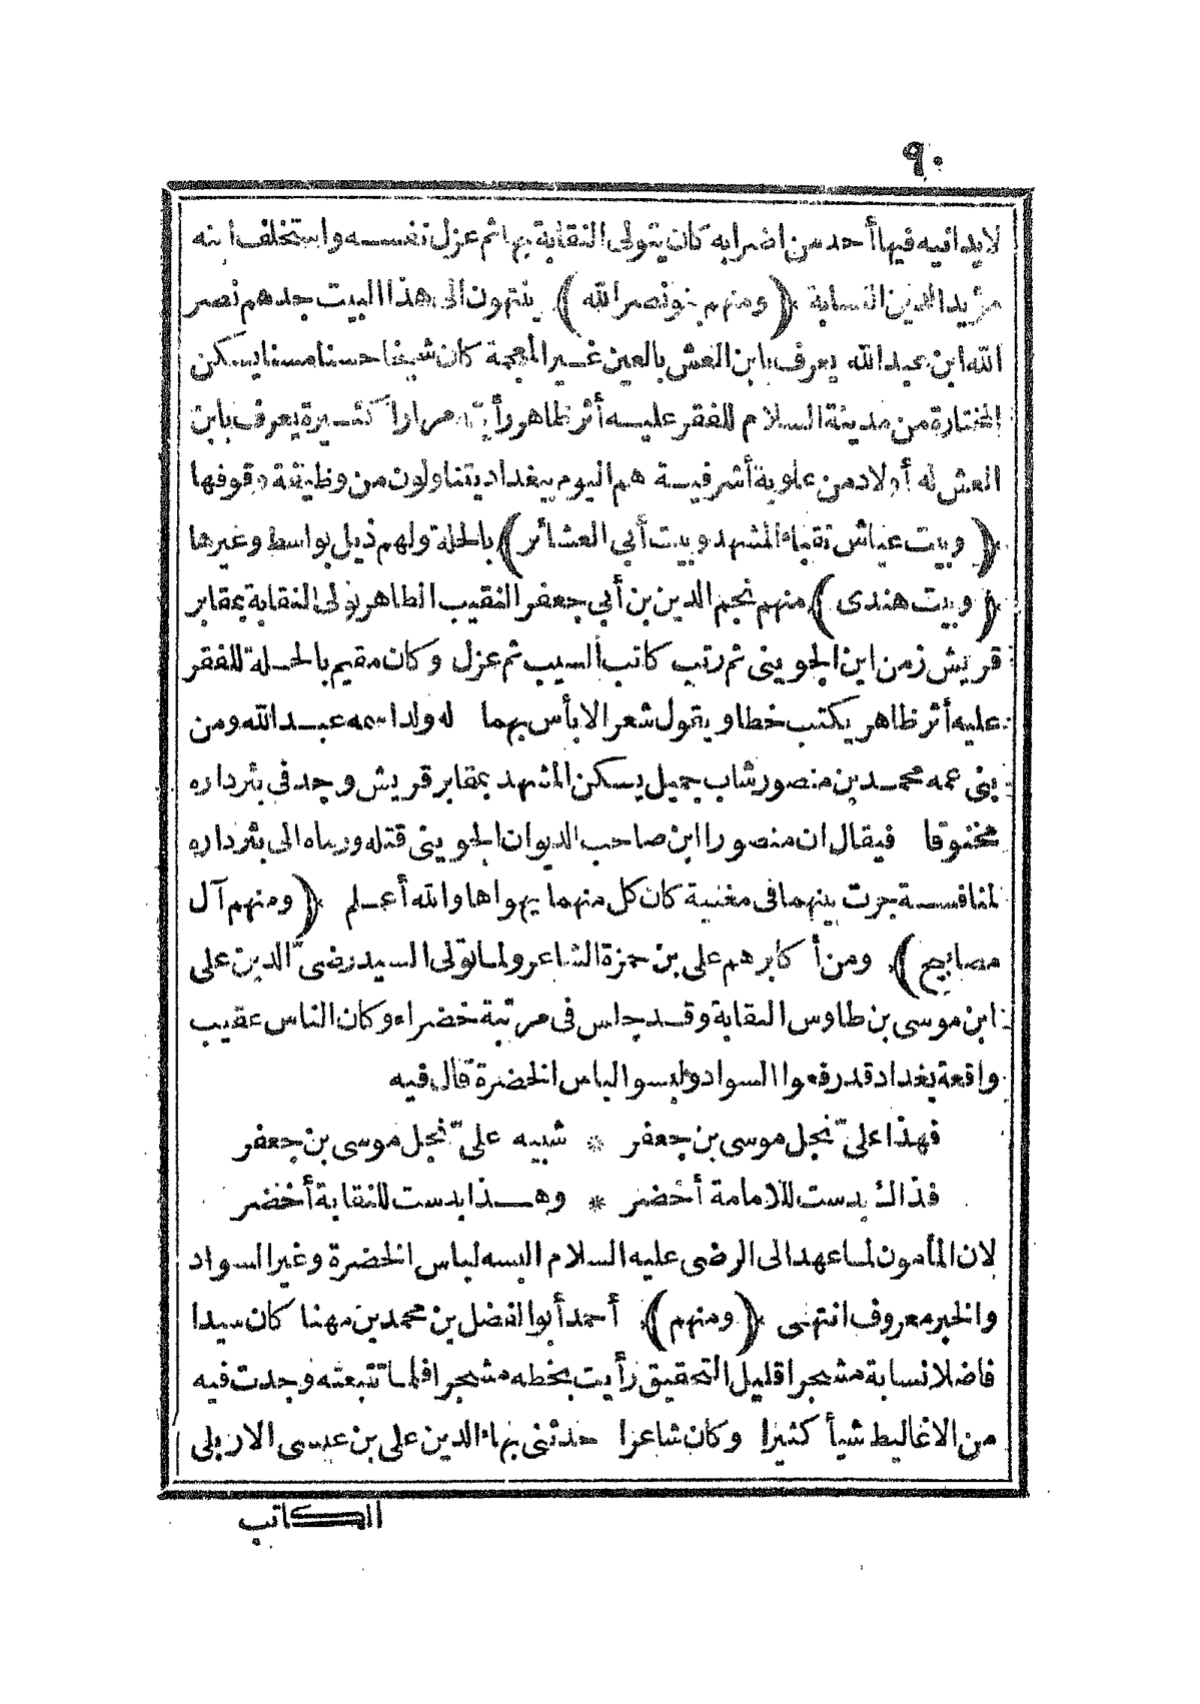 ٩٠
لايدانيه فيها أحد من اضرابه كان يتولى النقابة بها ثم عزل نفسه واستخلف ابنه
مؤيد الدين النسابة ﴿ومنهم بنو نصر الله﴾ ينتهون الى هذا البيت جدهم نصر
الله ابن عبد الله يعرف بابن العش بالعين غير المعجمة كان شيخا حسنا مسنا يسكن
المختارة من مدينة السلام للفقر عليه أثر ظاهر رأيته مرارا كثيرة يعرف بابن
العش له أولاد من علوية أشرفية هم اليوم ببغداد يتناولون من وظيفة وقوفها
﴿وبيت عياش نقباء المشهد وبيت أبي العشائر﴾ بالحلة ولهم ذيل بواسط وغيرها
﴿وبيت هندى﴾ منهم نجم الدين بن أبي جعفر النقيب الطاهر تولى النقابة بمقابر
قريش زمن ابن الجوينى ثم رتب كاتب السيب ثم عزل وكان مقيم بالحلة للفقر
عليه أثر ظاهر يكتب خطا ويقول شعرا لا بأس بهما له ولد اسمه عبد الله ومن
بنى عمه محمد بن منصور شاب جميل يسكن المشهد بمقابر قريش وجد فى بئر داره
مخنوقا فيقال ان منصورا ابن صاحب الديوان الجوينى قتله ورماه الى بئر داره
لمنافسة جرت بينهما فى مغنية كان كل منهما يهواها والله أعلم ﴿ومنهم آل
مصابيح﴾ ومن أكابرهم على بن حمزة الشاعر ولما تولى السيد رضىّ الدين على
ابن موسى بن طاوس النقابة وقد جلس فى مرتبة خضراء وكان الناس عقيب
واقعة بغداد قد رفعوا السواد ولبسوا لباس الخضرة قال فيه
فهذا علىّ نجل موسى بن جعفر * شبيه علىّ نجل موسى بن جعفر
فذاك بدست للامامة أخضر * وهذا بدست للنقابة أخضر
لان المأمون لما عهد الى الرضى عليه السلام البسه لباس الخضرة وغير السواد
والخبر معروف انتهى ﴿ومنهم﴾ أحمد أبو الفضل بن محمد بن مهنا كان سيدا
فاضلا نسابة مشجرا قليل التحقيق رأيت بخطه مشجرا فلما تتبعته وجدت فيه
من الاغاليط شيأ كثيرا وكان شاعرا حدثنى بهاء الدين على بن عيسى الاربلى
الكاتب